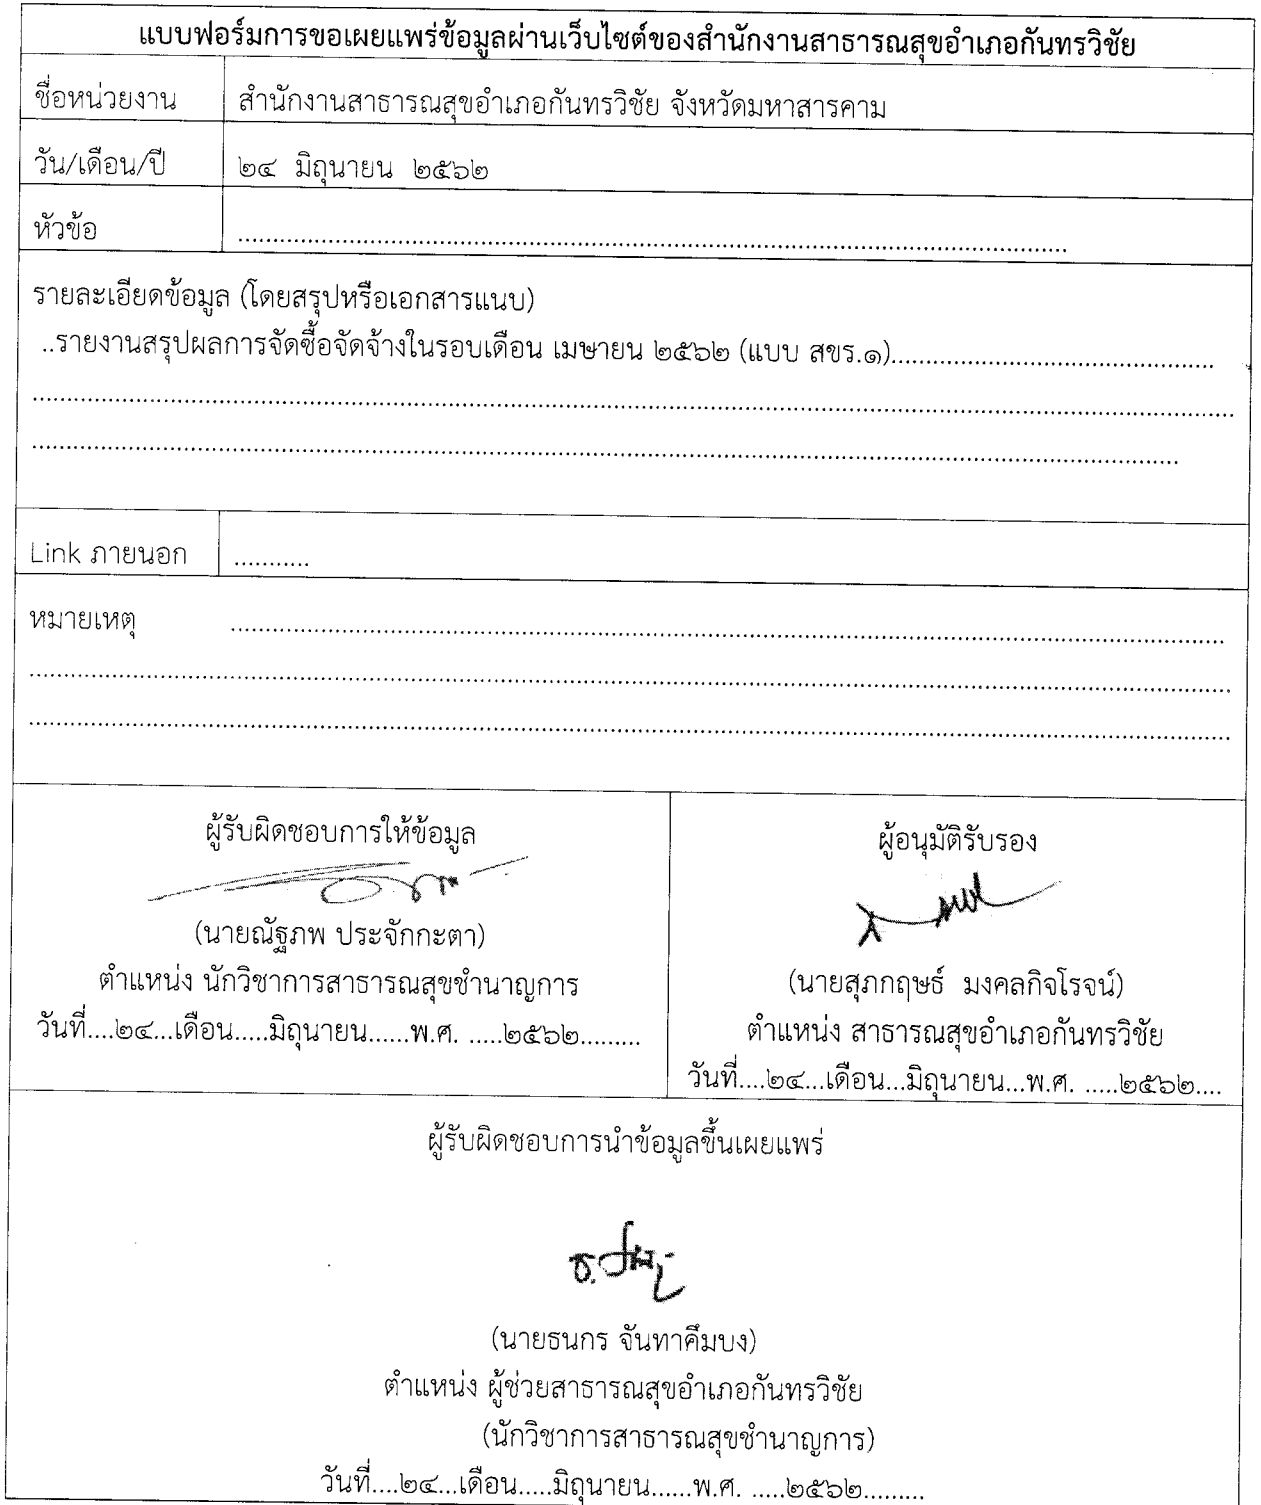 แบบฟอร์มการขอเผยแพร่ข้อมูลผ่านเว็บไซต์ของสำนักงานสาธารณสุขอำเภอกันทรวิชัย
ชื่อหน่วยงาน สำนักงานสาธารณสุขอำเภอกันทรวิชัย จังหวัดมหาสารคาม
วัน/เดือน/ปี ๒๔ มิถุนายน ๒๕๖๒
หัวข้อ ........................................................................................................................
รายละเอียดข้อมูล (โดยสรุปหรือเอกสารแนบ)
..รายงานสรุปผลการจัดซื้อจัดจ้างในรอบเดือน เมษายน ๒๕๖๒ (แบบ สขร.๑)...............................................
................................................................................................................................................................
........................................................................................................................................................
Link ภายนอก ...........
หมายเหตุ ................................................................................................................................
................................................................................................................................................................
................................................................................................................................................................
ผู้รับผิดชอบการให้ข้อมูล
(นายณัฐภพ ประจักกะตา)
ตำแหน่ง นักวิชาการสาธารณสุขชำนาญการ
วันที่....๒๔...เดือน.....มิถุนายน......พ.ศ. .....๒๕๖๒.........
ผู้อนุมัติรับรอง
(นายสุภกฤษธ์ มงคลกิจโรจน์)
ตำแหน่ง สาธารณสุขอำเภอกันทรวิชัย
วันที่....๒๔...เดือน...มิถุนายน...พ.ศ. .....๒๕๖๒....
ผู้รับผิดชอบการนำข้อมูลขึ้นเผยแพร่
(นายธนกร จันทาคึมบง)
ตำแหน่ง ผู้ช่วยสาธารณสุขอำเภอกันทรวิชัย
(นักวิชาการสาธารณสุขชำนาญการ)
วันที่....๒๔...เดือน.....มิถุนายน......พ.ศ. .....๒๕๖๒.........